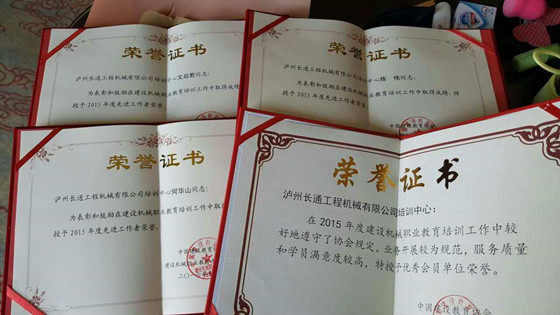 荣誉证书
泸州长通工程机械有限公司培训中心
同志：
为表彰和鼓励在建设机械职业教育培训工作中取得成绩，
授予2015年度先进工作者荣誉。
荣誉证书
泸州长通工程机械有限公司培训中心 伟同志：
为表彰和鼓励在建设机械职业教育培训工作中取得成绩，特
授予2015年度先进工作者荣誉。
中国
荣誉证书
泸州长通工程机械有限公司培训中心何华山同志：
为表彰和鼓励在建设机械职业教育培训工作中取
授予2015年度先进工作者荣誉。
中国建设教育
建设机械职业教育
二〇一
荣誉证书
泸州长通工程机械有限公司培训中心：
在2015年度建设机械职业教育培训工作中较
好地遵守了协会规定，业务开展较为规范，服务质量
和学员满意度较高，特授予优秀会员单位荣誉。
中国建设教育协会